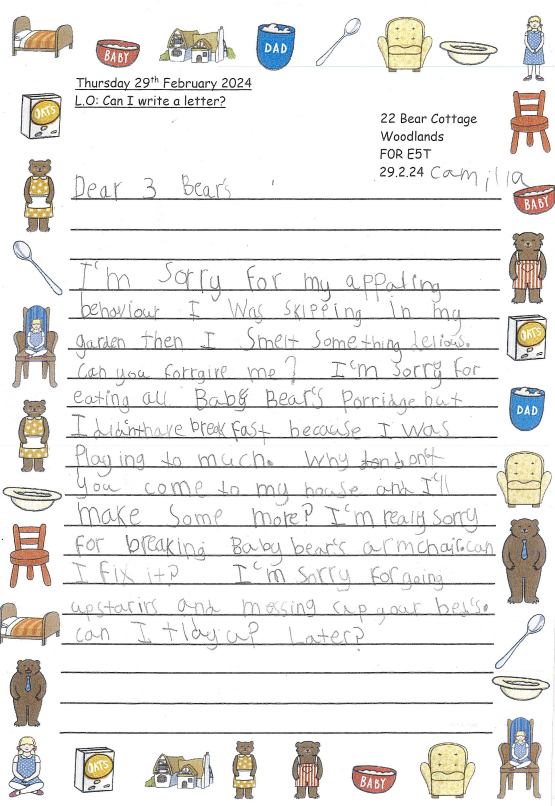 DAD
BABY
Thursday 29th February 2024
L.O: Can I write a letter?
OATS
22 Bear Cottage
Woodlands
FOR E5T
29.2.24 Camilla
BABY
Dear 3 Bear's
I'm Sorry for my appaling
behaviour I Was Skipping in my
garden then I Smelt Something delious.
Can you forrgive me? I'm Sorry for
OATS
eating all Baby Bear's Porridge but
DAD
I didn'thave breakfast because I was
Playing to much. Why don't
you come to my house and I'll
make Some more? I'm realy sorry
for breaking Baby bear's armchair.can
I fix it? I'm Sorry for going
upstairs and messing up your bed's.
can I tidy up Later?
OATS
BABY